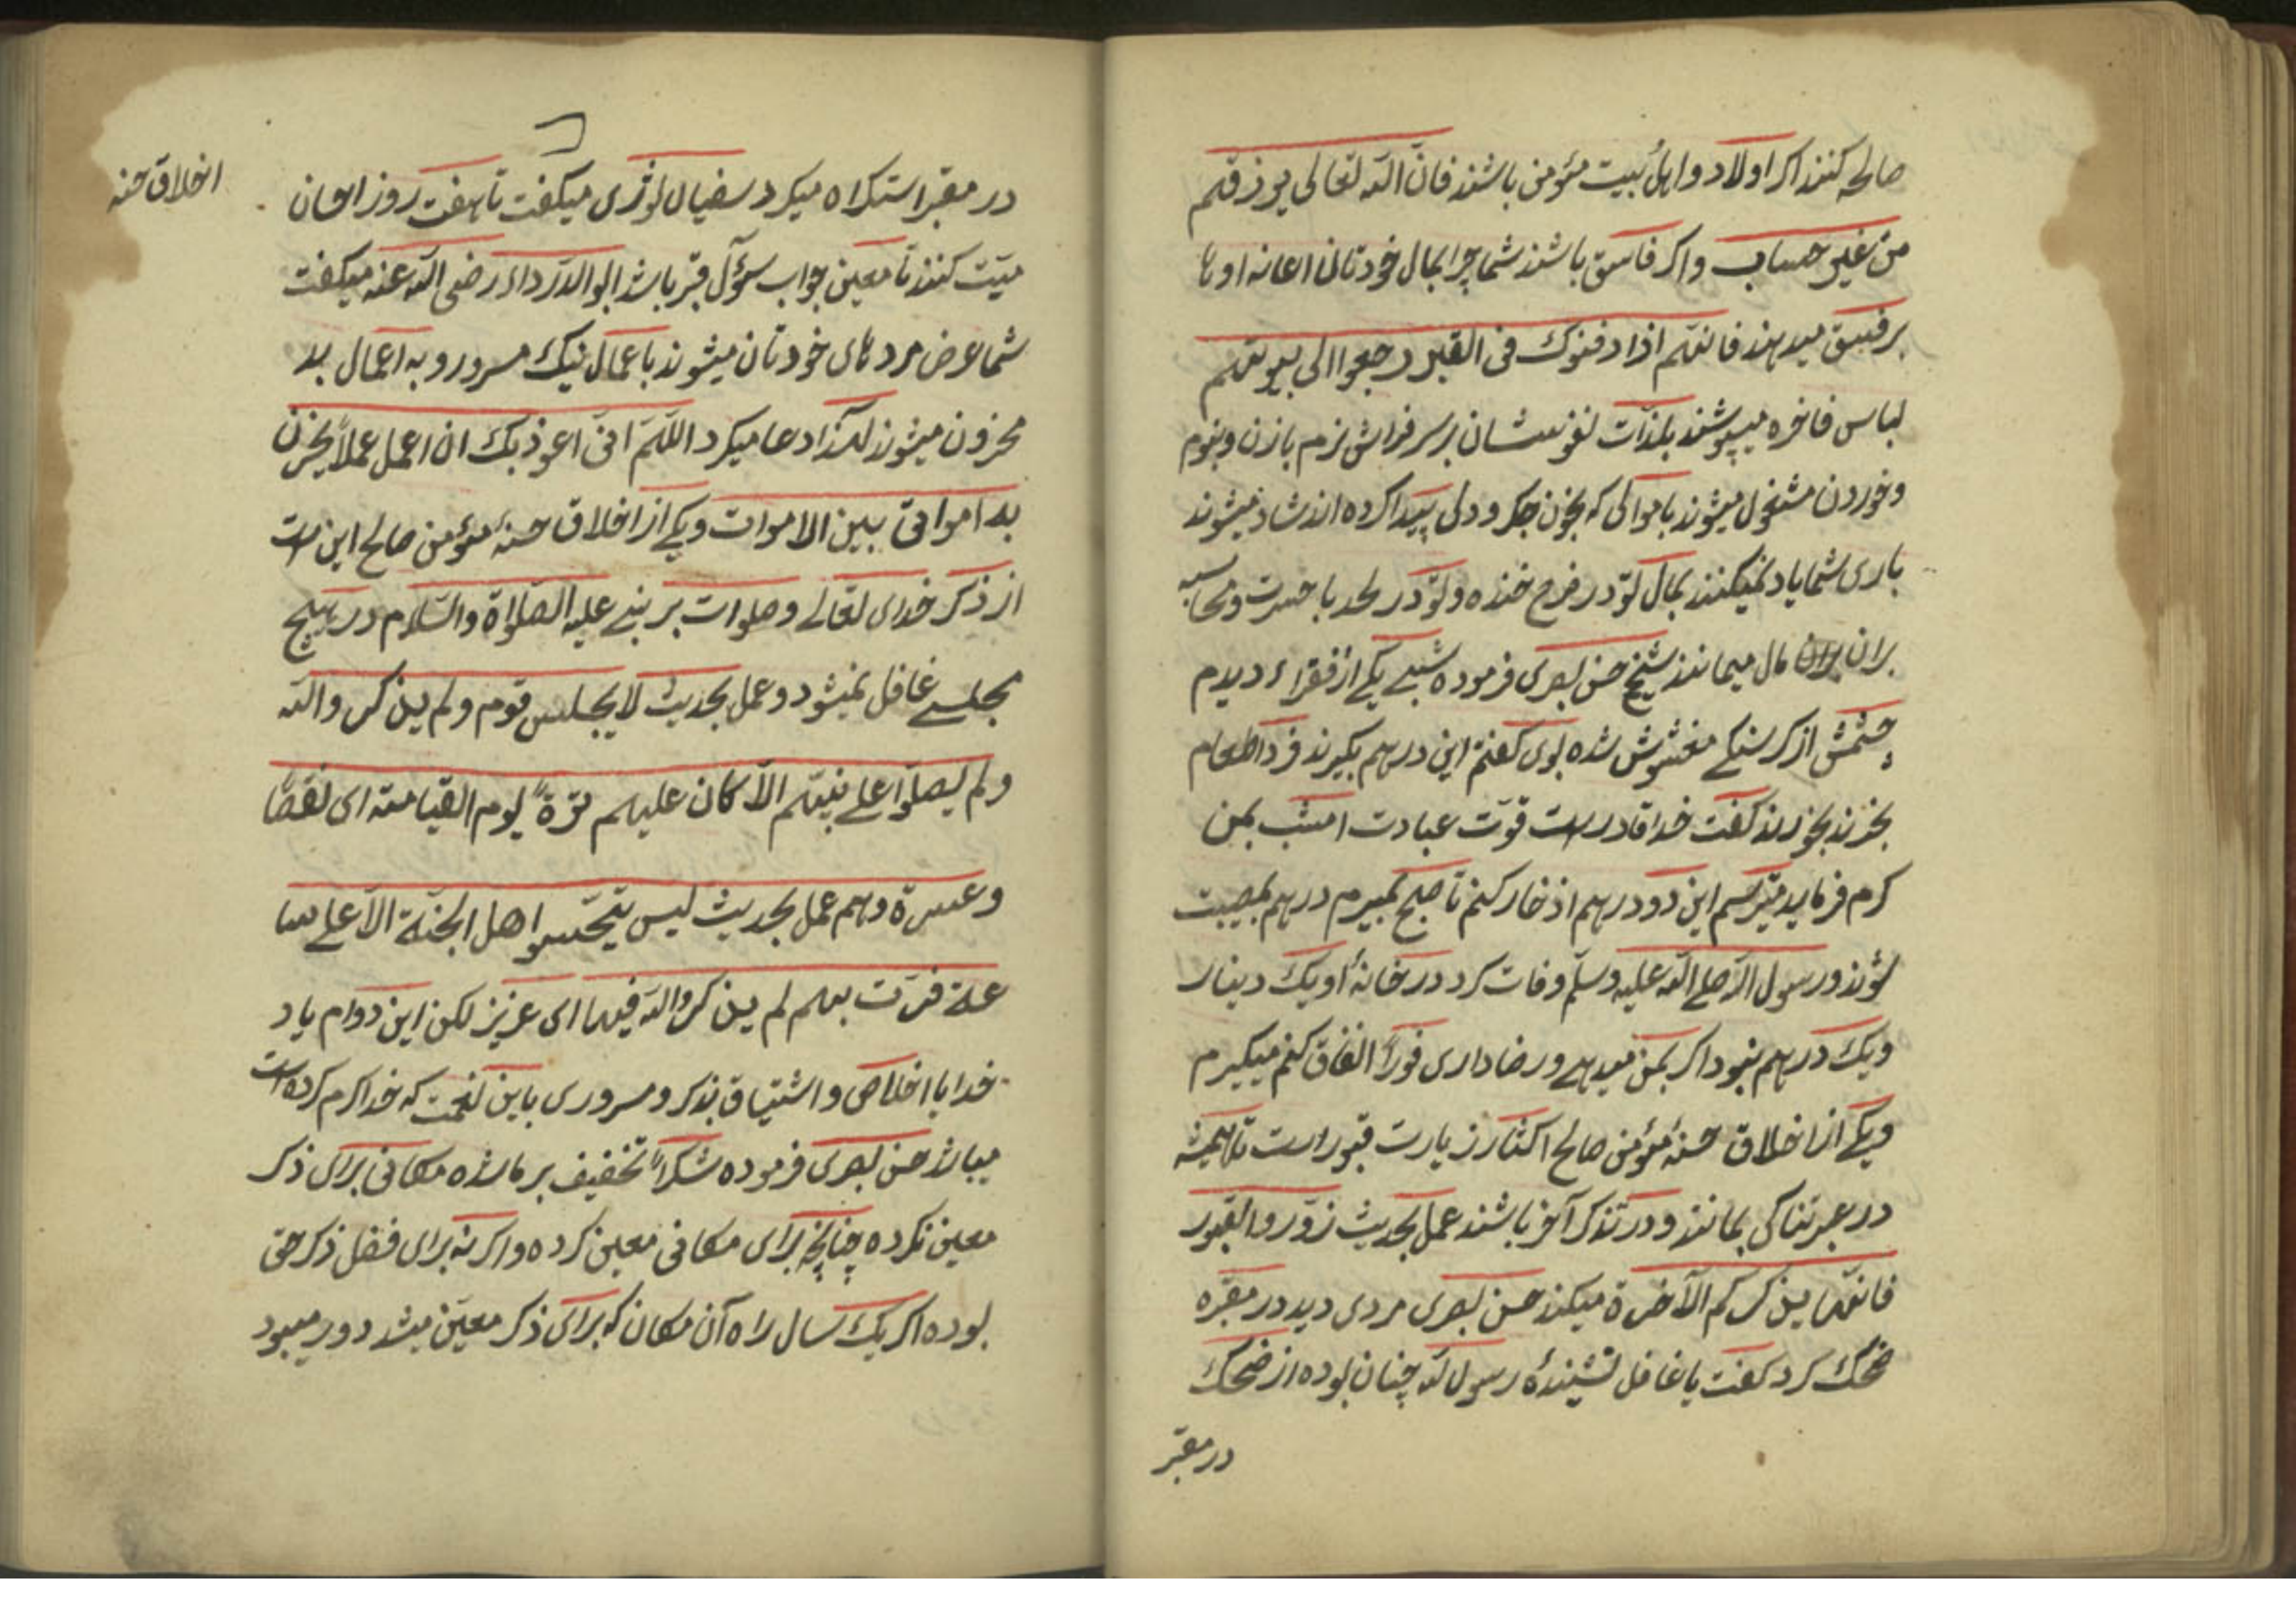 صالحه کنند اکر اولاد و اهل بیت مؤمن باشند فانّ اللّه تعالی یرزقهم
من غیر حساب واکر فاسق باشند شما چرا بمال خودتان اعانه اوها
بر فسق میدهند فانهم اذا دفنوک فی القبر رجعوا الی بیوتهم
لباس فاخره میپوشند بلذّات نفوسشان بر سر فراش نرم بازن ونوم
وخوردن مشغول میشوند باموالی که بخون جکر ودلی پیدا کرده اند شاد میشوند
باری شما یاد نمیکنند بمال تو در فرح خنده وتو در لحد با حسرت ومحاسبه
بران مال میمانند شیخ حسن بصری فرموده شبی یکی از فقراء دیدم
چشمش از کرسنکی مغشوش شده بوی کفتم این درهم بکیرند فردا طعام
بخرند بخورند کفت خدا قادرست قوّت عبادت امشب بمن
کرم فرماید میترسم این دو درهم اذخار کنم تا صبح بمیرم درهم بمصیبت
شوند ورسول اللّه صلی اللّه علیه وسلّم وفات کرد در خانهٔ او یک دینار
ویک درهم نبود اکر بمن میدهی ورضا داری فوراً انفاق کنم میکیرم
ویکی از اخلاق حسنهٔ مؤمن صالح اکثار زیارت قبور است تا همیشه
در عبرتناکی بمانند ودر تذکر آخر باشند عمل بحدیث زوّروا القبور
فانّها یذکرکم الآخرة میکند حسن بصری مردی دید در مقبره
ضحک کرد کفت یا غافل نشنیدهٔ رسول اللّه چنان بوده از ضحک
در مقبر
اخلاق حسنه
در مقبر استکراه میکرد سفیان ثوری میکفت تا هفت روز احسان
میّت کنند تا معین جواب سؤآل قبر باشد ابو الدّرداء رضی اللّه عنه میکفت
شما عرض مردهای خودتان میشوند باعمال نیک مسرور و به اعمال بد
محزون میشوند لهذا دعا میکرد اللّهمّ انّی اعوذ بک ان اعمل عملاً یحزن
به امواتی بین الاموات ویکی از اخلاق حسنهٔ مؤمن صالح این است
از ذکر خدای تعالی وصلوات بر نبی علیه الصّلاة والسّلام در هیچ
مجلسی غافل نمیشود وعمل بحدیث لا یجلس قوم ولم یذکروا اللّه
ولم یصلّوا علی نبیّهم الاّ کان علیهم ترة یوم القیامة ای نقصاً
وعسرة وهم عمل بحدیث لیس یتحسّروا اهل الجنّة الاّ علی سا
عة مرّت بهم لم یذکروا اللّه فیها ای عزیز لکن این دوام یاد
خدا با اخلاص واشتیاق بذکر ومسروری باین نعمت که خدا کرم کرده است
میباشد حسن بصری فرموده شکراً تخفیف بر ما شده مکانی برای ذکر
معین نکرده چنانچه برای مکانی معین کرده واکرنه برای فضل ذکر حق
بوده اکر یک سال راه آن مکان که برای ذکر معیّن میشد دور میبود